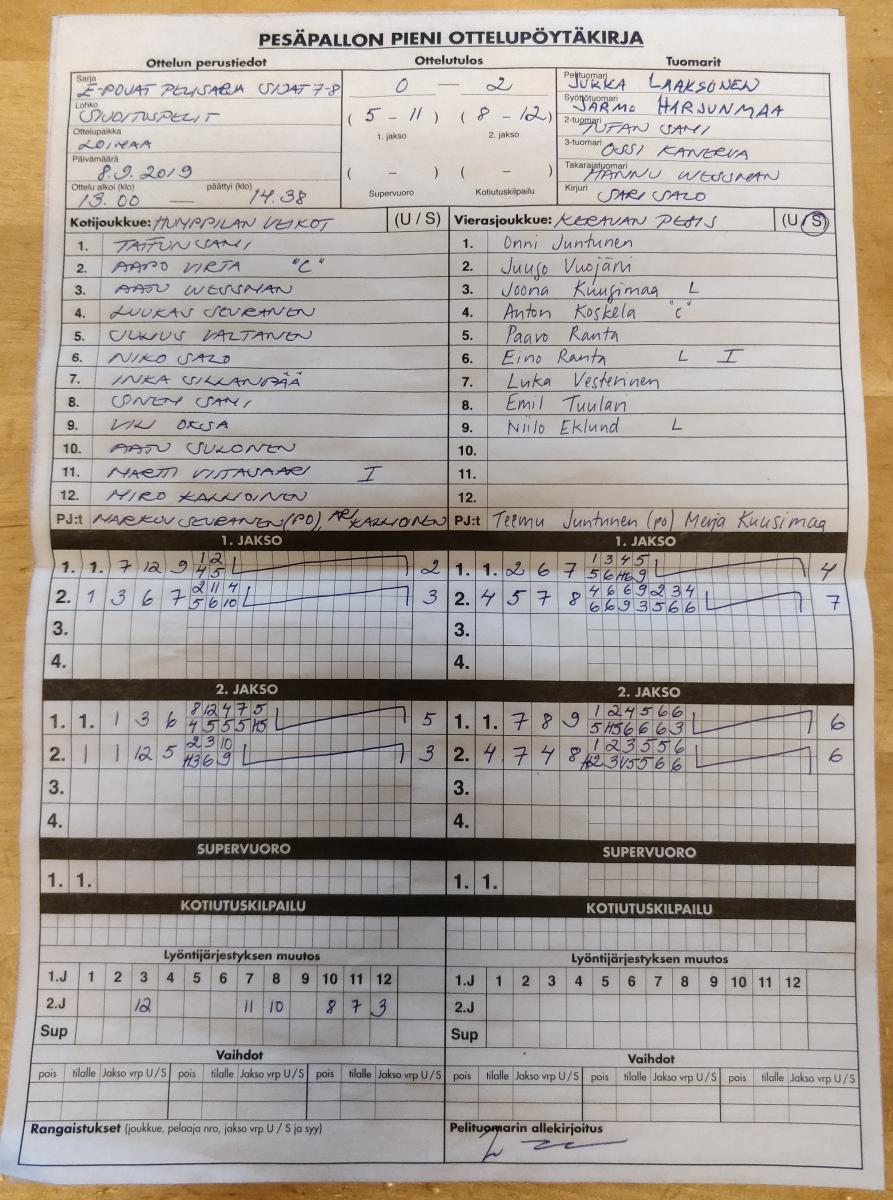 PESÄPALLON PIENI OTTELUPÖYTÄKIRJA
Ottelun perustiedot
Sarja
E-POJAT PELISARJA SIJAT 7-8
Lohko
SIJOITUSPELIT
Ottelupaikka
LOIMAA
Päivämäärä
8.9.2019
Ottelu alkoi (klo) päättyi (klo)
13.00 — 14.38
Ottelutulos
0 — 2
( 5 - 11 ) ( 8 - 12 )
1. jakso 2. jakso
( - ) ( - )
Supervuoro Kotiutuskilpailu
Tuomarit
Pelituomari
JUKKA LAAKSONEN
Syöttötuomari
JARMO HARJUNMAA
2-tuomari
TUFAN SAMI
3-tuomari
OSSI KANERVA
Takarajatuomari
HANNU WESSMAN
Kirjuri
SARI SALO
Kotijoukkue: HUMPPILAN VEIKOT (U / S)
1. TAIFUN SAMI
2. AAPO VIRTA "C"
3. AATU WESSMAN
4. LUUKAS SEURANEN
5. JULIUS VALTANEN
6. NIKO SALO
7. INKA SILLANPÄÄ
8. SINEM SAMI
9. VILI OKSA
10. AATU SULONEN
11. MARTTI VIITASAARI I
12. MIRO KALLIOINEN
PJ:t MARKUU SEURANEN (PO), ARI KALLIOINEN
Vierasjoukkue: KERAVAN PESIS (U / S)
1. Onni Juntunen
2. Juuso Vuojärvi
3. Joona Kuusimaa L
4. Anton Koskela "C"
5. Paavo Ranta
6. Eino Ranta L I
7. Luka Vesterinen
8. Emil Tuulari
9. Niilo Eklund L
10.
11.
12.
PJ:t Teemu Juntunen (po) Merja Kuusimaa
1. JAKSO
1. 1. 7 12 9 1 2 2
4 5
2. 1 3 6 7 2 11 4 3
5 6 10
3.
4.
1. JAKSO
1. 1. 2 6 7 1 3 4 5 4
5 6 H6 9
2. 4 5 7 8 4 6 6 9 2 3 4 7
6 6 9 3 5 6 6
3.
4.
2. JAKSO
1. 1. 1 3 6 8 12 4 7 5 5
4 5 5 5 H5
2. 1 1 12 5 2 3 10 3
H3 6 9
3.
4.
2. JAKSO
1. 1. 7 8 9 1 2 4 5 6 6 6
5 H5 6 6 6 3
2. 4 7 4 8 1 2 3 5 5 6 6
3.
4.
SUPERVUORO
1. 1.
SUPERVUORO
1. 1.
KOTIUTUSKILPAILU
KOTIUTUSKILPAILU
Lyöntijärjestyksen muutos
1.J 1 2 3 4 5 6 7 8 9 10 11 12
2.J 12 11 10 8 7 3
Sup
Lyöntijärjestyksen muutos
1.J 1 2 3 4 5 6 7 8 9 10 11 12
2.J
Sup
Vaihdot
pois tilalle Jakso vrp U / S pois tilalle Jakso vrp U / S pois tilalle Jakso vrp U / S
Vaihdot
pois tilalle Jakso vrp U / S pois tilalle Jakso vrp U / S pois tilalle Jakso vrp U / S
Rangaistukset (joukkue, pelaaja nro, jakso vrp U / S ja syy)
Pelituomarin allekirjoitus